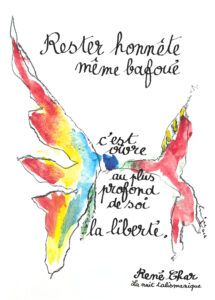 Rester honnête
même bafoué
c'est
ouvrir
au plus
profond
de soi
la liberté.
René Char
La nuit talismanique